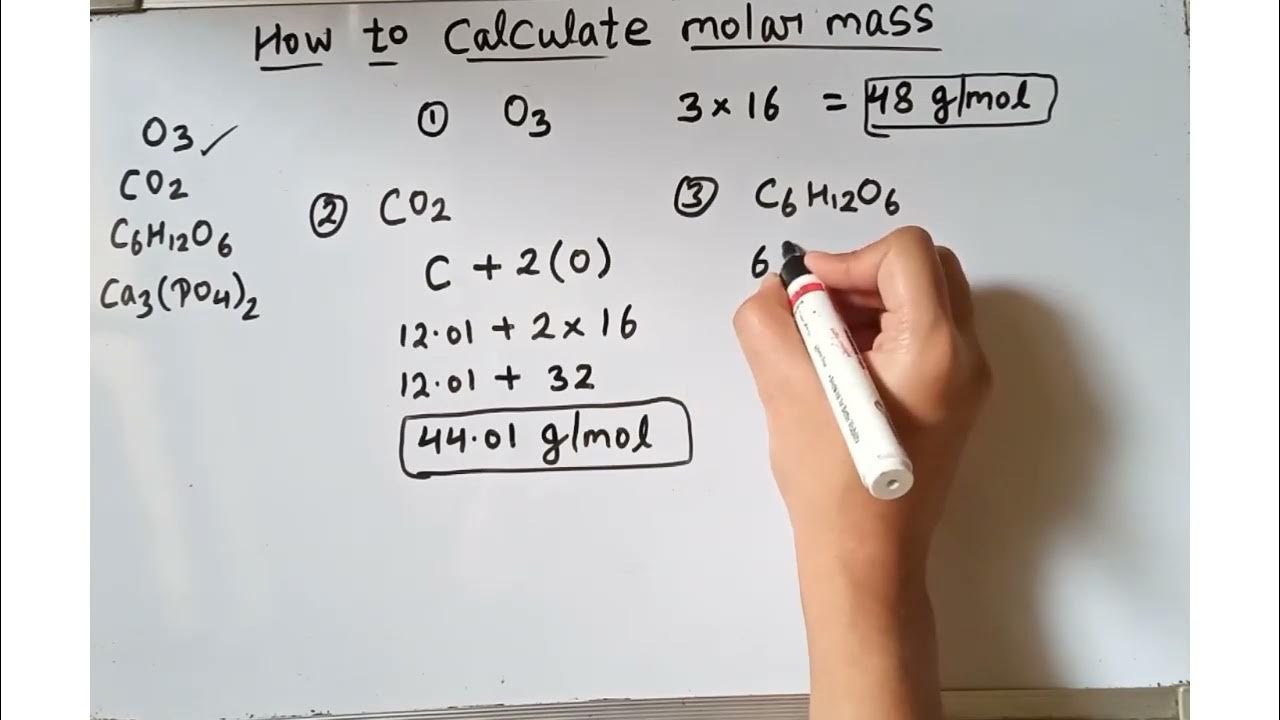 How to Calculate molar mass
O3 ✓
CO2
C6H12O6
Ca3(PO4)2
① O3 3 × 16 = 48 g/mol
② CO2
C + 2(O)
12.01 + 2 × 16
12.01 + 32
44.01 g/mol
③ C6H12O6
6